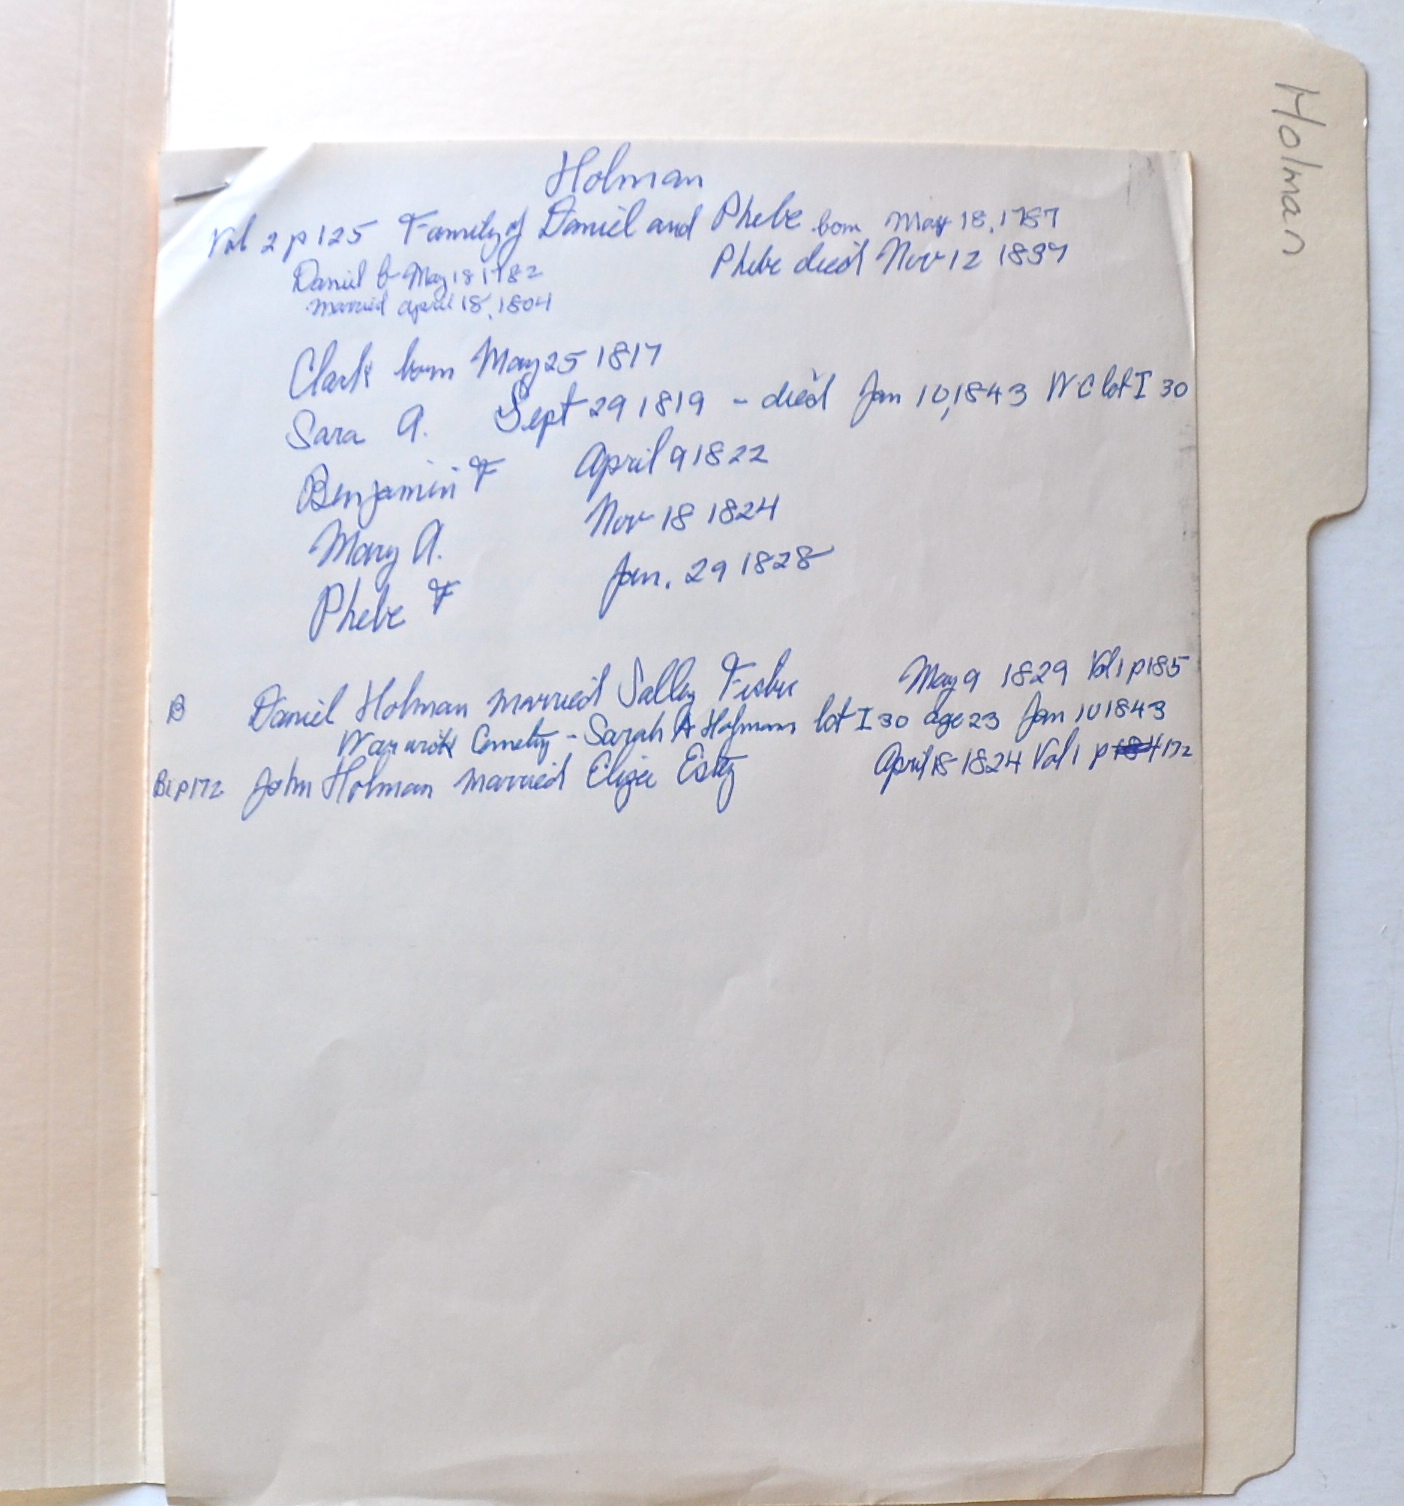 Holman
Holman
Vol 2 p 125 Family of Daniel and Phebe born May 18, 1787
Daniel b May 18 1782 Phebe died Nov 12 1837
married April 18, 1804
Clark born May 25 1817
Sara A. Sept 29 1819 - died Jan 10, 1843 W C lot I 30
Benjamin F April 9 1822
Mary A. Nov 18 1824
Phebe F Jan. 29 1828
B Daniel Holman married Salley Fisher May 9 1829 Vol 1 p 185
Warwick Cemetery - Sarah A Holmans lot I 30 age 23 Jan 10 1843
B1 p 172 John Holman married Eliza Esty April 18 1824 Vol 1 p 172